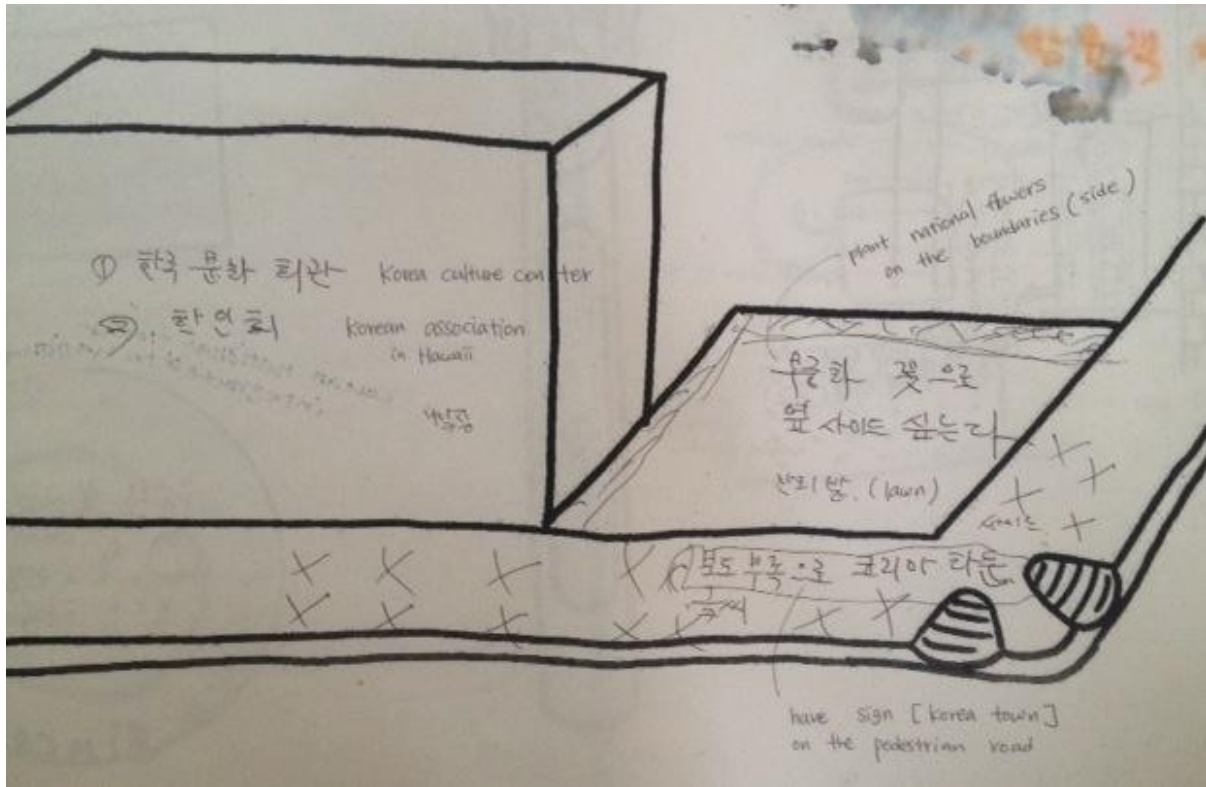 ① 한국 문화 회관 Korea culture center
② 한인회 Korean association
in Hawaii
plant national flowers
on the boundaries (side)
무궁화 꽃으로
옆 사이드 심는다
잔디밭. (lawn)
사이드
보도 부록으로 코리아 타운
글씨
have sign [korea town]
on the pedestrian road